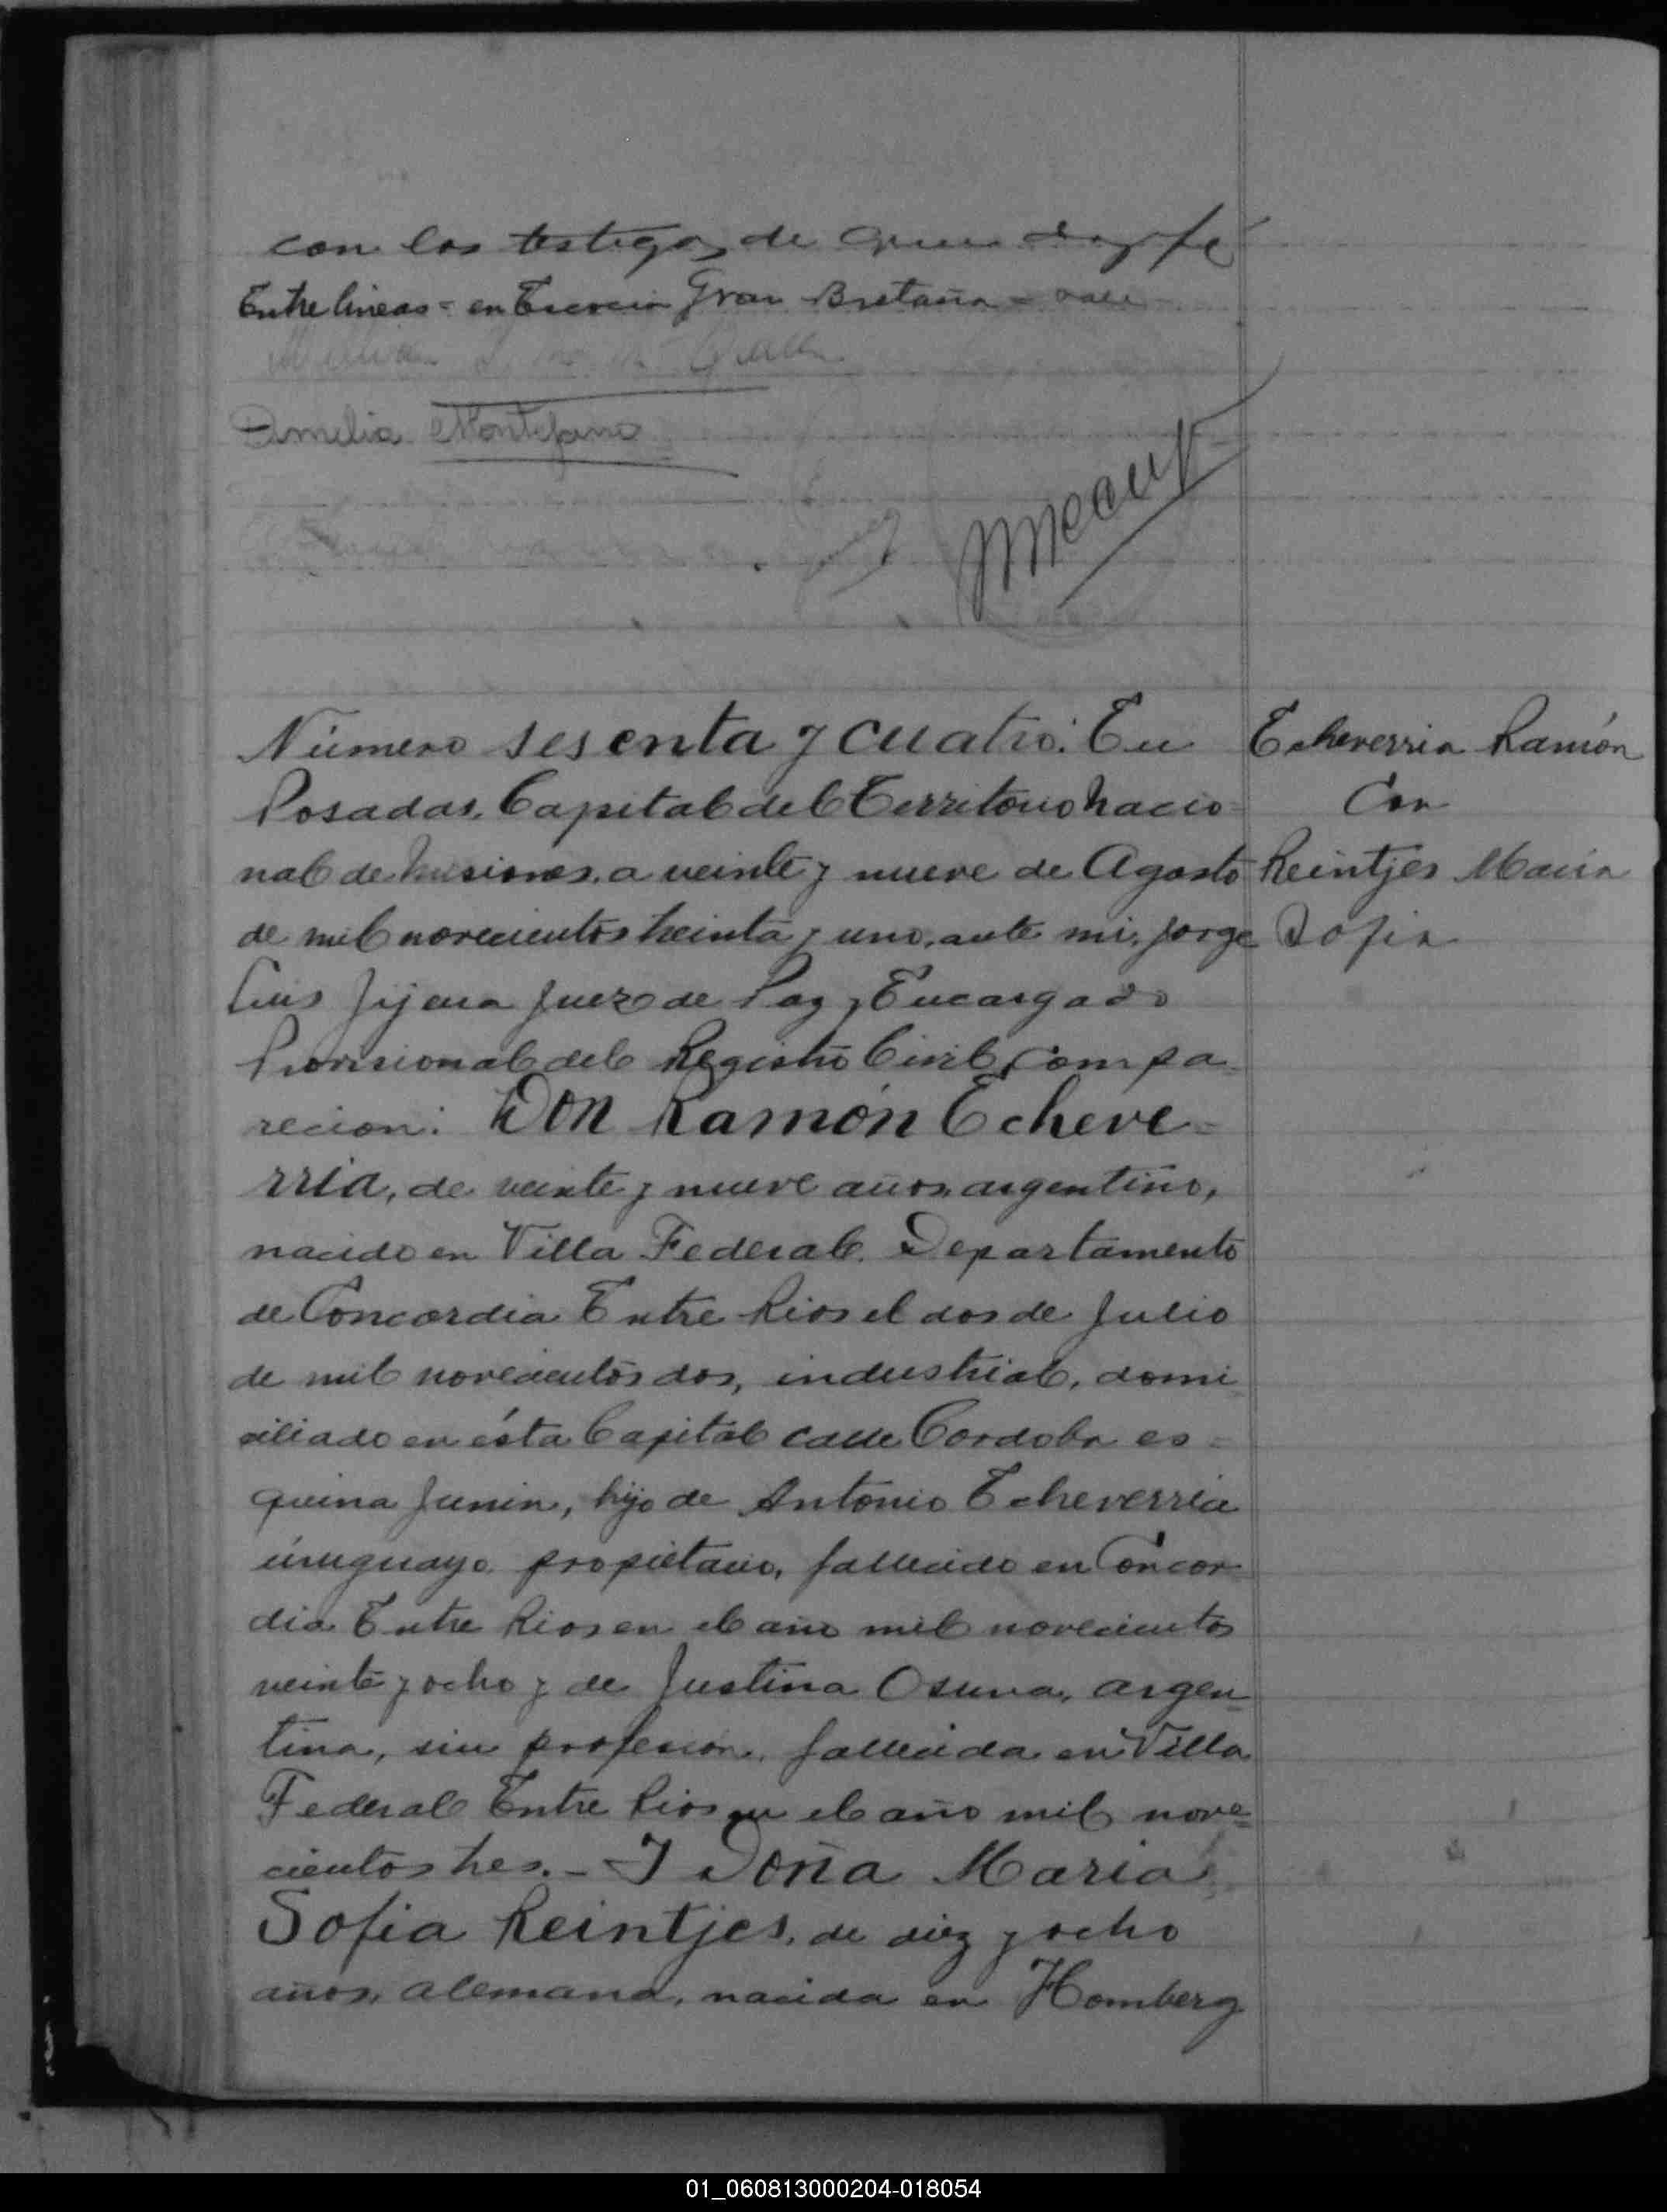 con los testigos de que doy fé
Entre lineas = en Escocia Gran Bretaña = vale
Amelia Montefano
Número sesenta y cuatro: En
Posadas, Capital del Territorio nacio=
nal de Misiones, a veinte y nueve de Agosto
de mil novecientos treinta y uno, ante mi, Jorge
Luis Jijena Juez de Paz y Encargado
Provisional del Registro Civil, compa
recieron: Don Ramón Echeve=
rria, de veinte y nueve años, argentino,
nacido en Villa Federal, Departamento
de Concordia Entre Rios el dos de Julio
de mil novecientos dos, industrial, domi
ciliado en ésta Capital calle Cordoba es=
quina Junin, hijo de Antonio Echeverria
úruguayo, propietario, fallecido en Concor
dia Entre Rios en el año mil novecientos
veinte y ocho y de Justina Osuna, argen
tina, sin profesión, fallecida en Villa
Federal Entre Rios en el año mil nove=
cientos tres.- Y Doña Maria
Sofia Reintjes, de diez y ocho
años, alemana, nacida en Homberg
Echeverria Ramón
Con
Reintjes Maria
Sofia
01_060813000204-018054